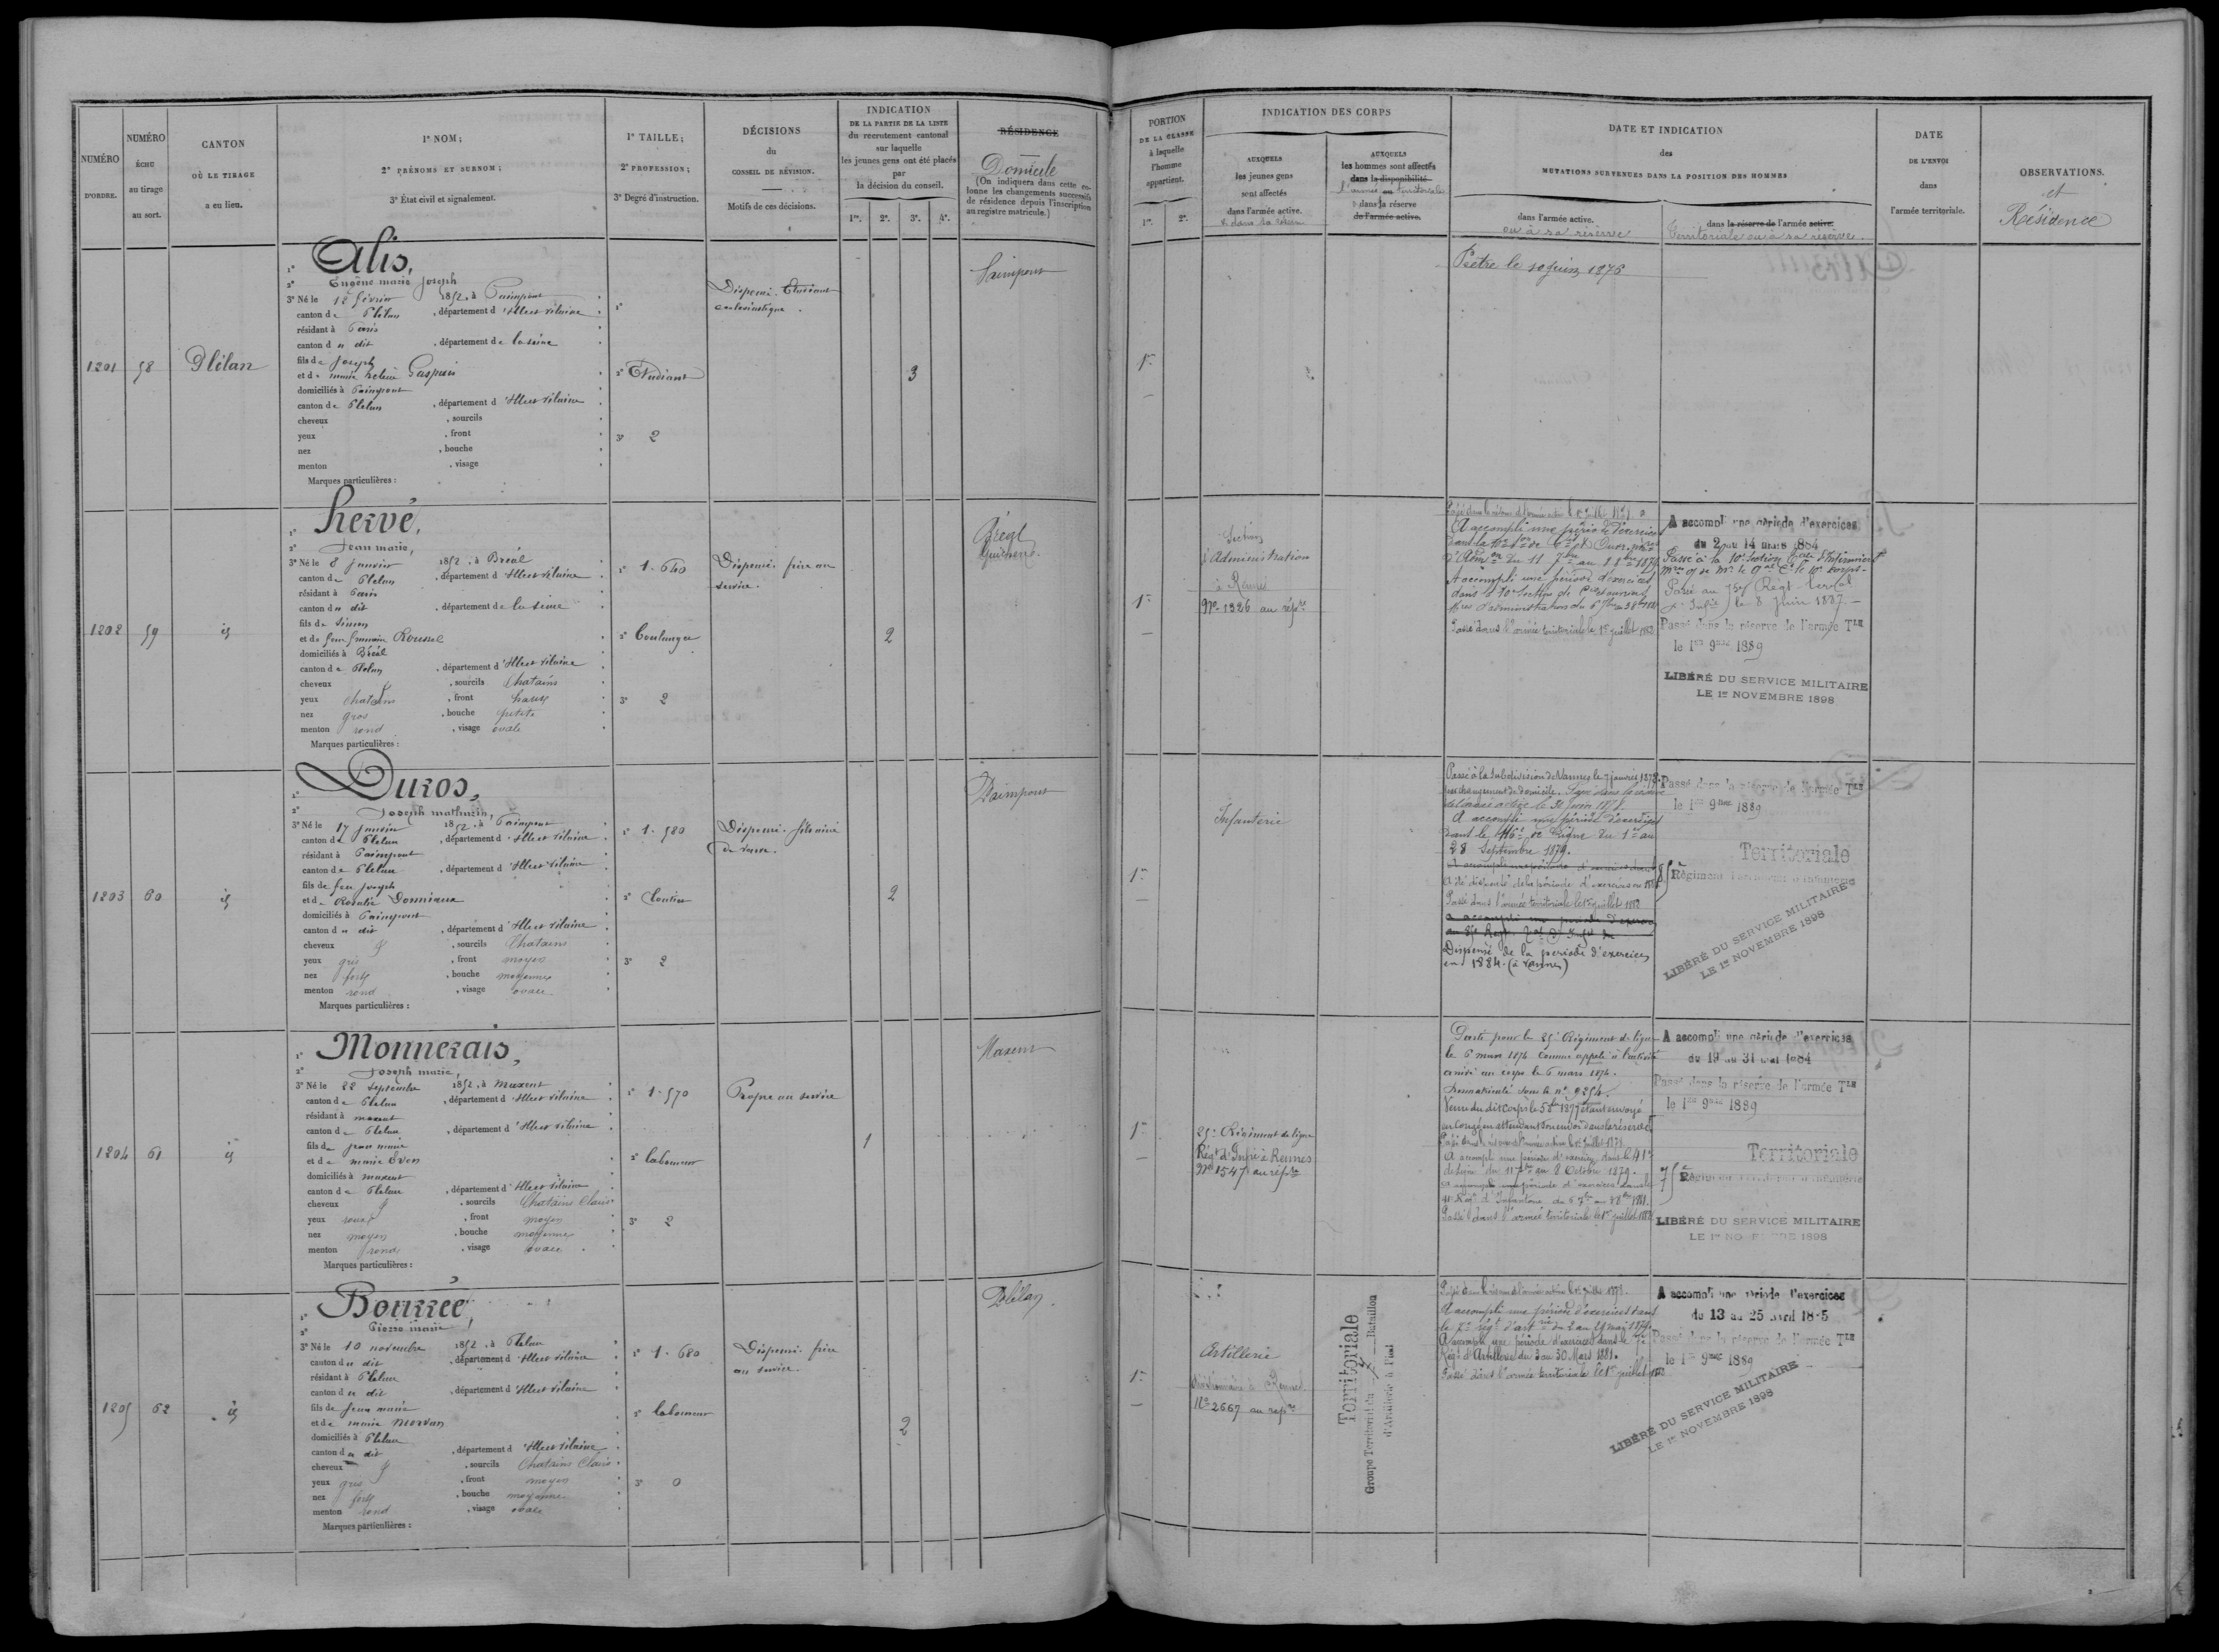 NUMÉRO
D'ORDRE.
NUMÉRO
ÉCHU
au tirage
au sort.
CANTON
OÙ LE TIRAGE
a eu lieu.
1° NOM;
2° PRÉNOMS ET SURNOM;
3° État civil et signalement.
1° TAILLE;
2° PROFESSION;
3° Degré d'instruction.
DÉCISIONS
du
CONSEIL DE RÉVISION.
Motifs de ces décisions.
INDICATION
DE LA PARTIE DE LA LISTE
du recrutement cantonal
sur laquelle
les jeunes gens ont été placés
par
la décision du conseil.
1re. 2e. 3e. 4e.
RÉSIDENCE
Domicile
(On indiquera dans cette co-
lonne les changements successifs
de résidence depuis l'inscription
au registre matricule.)
PORTION
DE LA CLASSE
à laquelle
l'homme
appartient.
1re. 2e.
INDICATION DES CORPS
AUXQUELS
les jeunes gens
sont affectés
dans l'armée active.
AUXQUELS
les hommes sont affectés
dans la disponibilité
l'armée territoriale
dans la réserve
de l'armée active.
DATE ET INDICATION
des
MUTATIONS SURVENUES DANS LA POSITION DES HOMMES
dans l'armée active.
ou à sa réserve
dans la réserve de l'armée active.
Territoriale ou à sa réserve.
DATE
DE L'ENVOI
dans
l'armée territoriale.
OBSERVATIONS.
et
Résidence
1201
58
Plélan
1° Alis,
2° Eugène marie Joseph
3° Né le 12 février 1852, à Paimpont
canton de Plélan, département d'Ille et Vilaine
résidant à Paris
canton du dit, département de la Seine
fils de Joseph
et de marie
domiciliés à Paimpont
canton de Plélan, département d'Ille et Vilaine
cheveux , sourcils
yeux , front
nez , bouche
menton , visage
Marques particulières :
1°
2° Etudiant
3° 2
Dispensé. Etudiant
ecclésiastique.
3
Paimpont
1re
Prêtre le 10 Juin 1876
1202
59
id
1° Hervé,
2° Jean marie,
3° Né le 8 janvier 1852, à Bréal
canton de Plélan, département d'Ille et Vilaine
résidant à Paris
canton du dit, département de la Seine
fils de Simon
et de
domiciliés à Bréal
canton de Plélan, département d'Ille et Vilaine
cheveux , sourcils Chatains
yeux Chatains, front haut
nez gros, bouche petite
menton rond, visage ovale
Marques particulières :
1° 1.640
2° boulanger
3° 2
Dispensé. frère au
service.
2
Bréal
1re
Section
d'Administration
à Rennes
No 1326 au répre
A accompli une période d'exercices
A accompli une période d'exercices
Passé dans l'armée territoriale le 1er juillet 1883
A accompli une période d'exercices
du 2 au 14 mars 1884
Passé au 75e Régt territal
d'Infie le 8 Juin 1887
Passé dans la réserve de l'armée Tle
le 1er 9bre 1889
LIBÉRÉ DU SERVICE MILITAIRE
LE 1er NOVEMBRE 1898
1203
60
id
1° Duros,
2° Joseph mathurin,
3° Né le 17 janvier 1852, à Paimpont
canton de Plélan, département d'Ille et Vilaine
résidant à Paimpont
canton de Plélan, département d'Ille et Vilaine
fils de feu joseph
et de Rosalie
domiciliés à Paimpont
canton du dit, département d'Ille et Vilaine
cheveux , sourcils Chatains
yeux gris, front moyen
nez fort, bouche moyenne
menton rond, visage ovale
Marques particulières :
1° 1.580
2° Cloutier
3° 2
Dispensé. fils aîné
de veuve.
2
Paimpont
1re
Infanterie
Passé à la Subdivision de Vannes le 7 janvier 1878
par changement de domicile. Passé dans la réserve
de l'armée active le 30 Juin 1878.
A accompli une période d'exercices
dans le 116e de Ligne du 1er au
28 Septembre 1879.
A été dispensé de la période d'exercices en 1881
Passé dans l'armée territoriale le 1er juillet 1883
Dispensé de la période d'exercices
en 1884. (à Vannes)
Passé dans la réserve de l'armée Tle
le 1er 9bre 1889
Territoriale
85e Régiment Territorial d'Infanterie
LIBÉRÉ DU SERVICE MILITAIRE
LE 1er NOVEMBRE 1898
1204
61
id
1° Monnerais,
2° Joseph marie,
3° Né le 22 Septembre 1852, à Maxent
canton de Plélan, département d'Ille et Vilaine
résidant à maxent
canton de Plélan, département d'Ille et Vilaine
fils de jean marie
et de marie Even
domiciliés à maxent
canton de Plélan, département d'Ille et Vilaine
cheveux , sourcils Chatains Clairs
yeux roux, front moyen
nez moyen, bouche moyenne
menton rond, visage ovale
Marques particulières :
1° 1.570
2° laboureur
3° 2
Propre au service
1
Maxent
1re
25e Régiment de ligne
Régt d'Infie à Rennes
No 1547 au répre
Parti pour le 25e Régiment de ligne
le 6 mars 1874 comme appelé à l'activité
arrivé au corps le 6 mars 1874.
Immatriculé sous le n° 9254.
A accompli une période d'exercices dans le 41e
de ligne du 11 7bre au 8 Octobre 1879.
Passé dans l'armée territoriale le 1er juillet 1883
A accompli une période d'exercices
du 19 au 31 mai 1884
Passé dans la réserve de l'armée Tle
le 1er 9bre 1889
Territoriale
75e Régiment Territorial d'Infanterie
LIBÉRÉ DU SERVICE MILITAIRE
LE 1er NOVEMBRE 1898
1205
62
id
1° Bourrée,
2° Pierre marie,
3° Né le 10 novembre 1852, à Plélan
canton du dit, département d'Ille et Vilaine
résidant à Plélan
canton du dit, département d'Ille et Vilaine
fils de Jean marie
et de marie Morvan
domiciliés à Plélan
canton du dit, département d'Ille et Vilaine
cheveux , sourcils Chatains Clairs
yeux gris, front moyen
nez fort, bouche moyenne
menton rond, visage ovale
Marques particulières :
1° 1.680
2° laboureur
3° 0
Dispensé. frère
au service.
2
Plélan
1re
Artillerie
No 2667 au répre
Territoriale
Groupe Territorial du Bataillon
d'Artillerie à Pied
A accompli une période d'exercices dans
A accompli une période d'exercices dans le 7e
Régt d'Artillerie du 3 au 30 Mars 1881.
Passé dans l'armée territoriale le 1er juillet 1883
A accompli une période d'exercices
du 13 au 25 avril 1885
Passé dans la réserve de l'armée Tle
le 1er 9bre 1889
LIBÉRÉ DU SERVICE MILITAIRE
LE 1er NOVEMBRE 1898